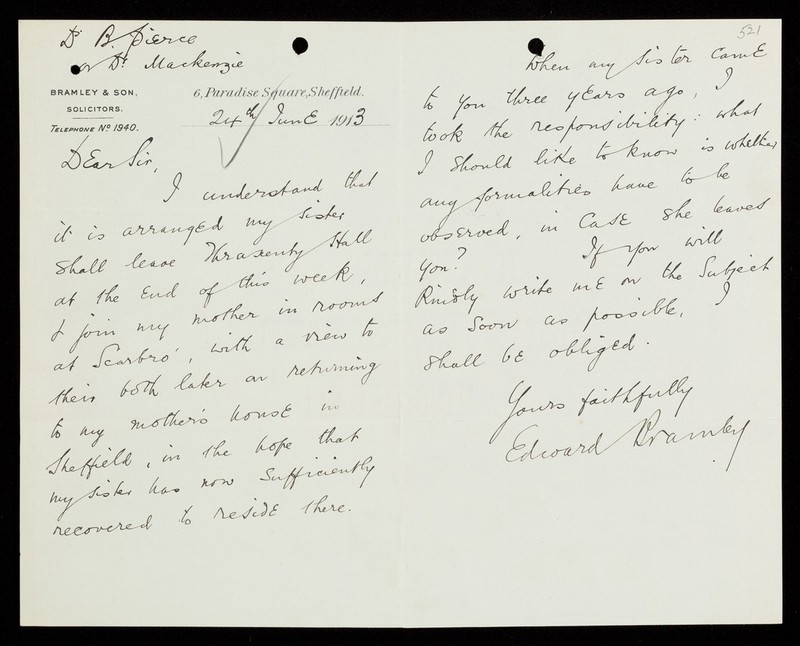 Dr B. Pierce
or Dr. Mackenzie
BRAMLEY & SON,
SOLICITORS.
TELEPHONE No 1940.
6, Paradise Square, Sheffield.
24th June 1913
Dear Sir,
I understand that
it is arranged my sister
shall leave Thraxenby Hall
at the end of this week,
& join my mother in rooms
at Scarbro', with a view to
their both later on returning
to my mother's house in
Sheffield, in the hope that
my sister has now sufficiently
recovered to reside there.
521
When my sister came
to you three years ago, I
took the responsibility: what
I should like to know is whether
any formalities have to be
observed, in case she leaves
you? If you will
kindly write me on the subject
as soon as possible, I
shall be obliged.
Yours faithfully
Edward Bramley